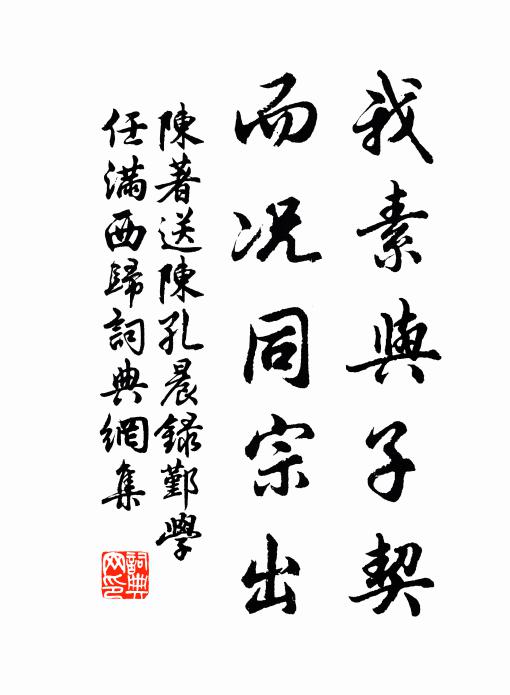 我素與子契
而況同宗出
陳著送陳孔晨錄鄞學
任滿西歸詞典網集
詞典網印